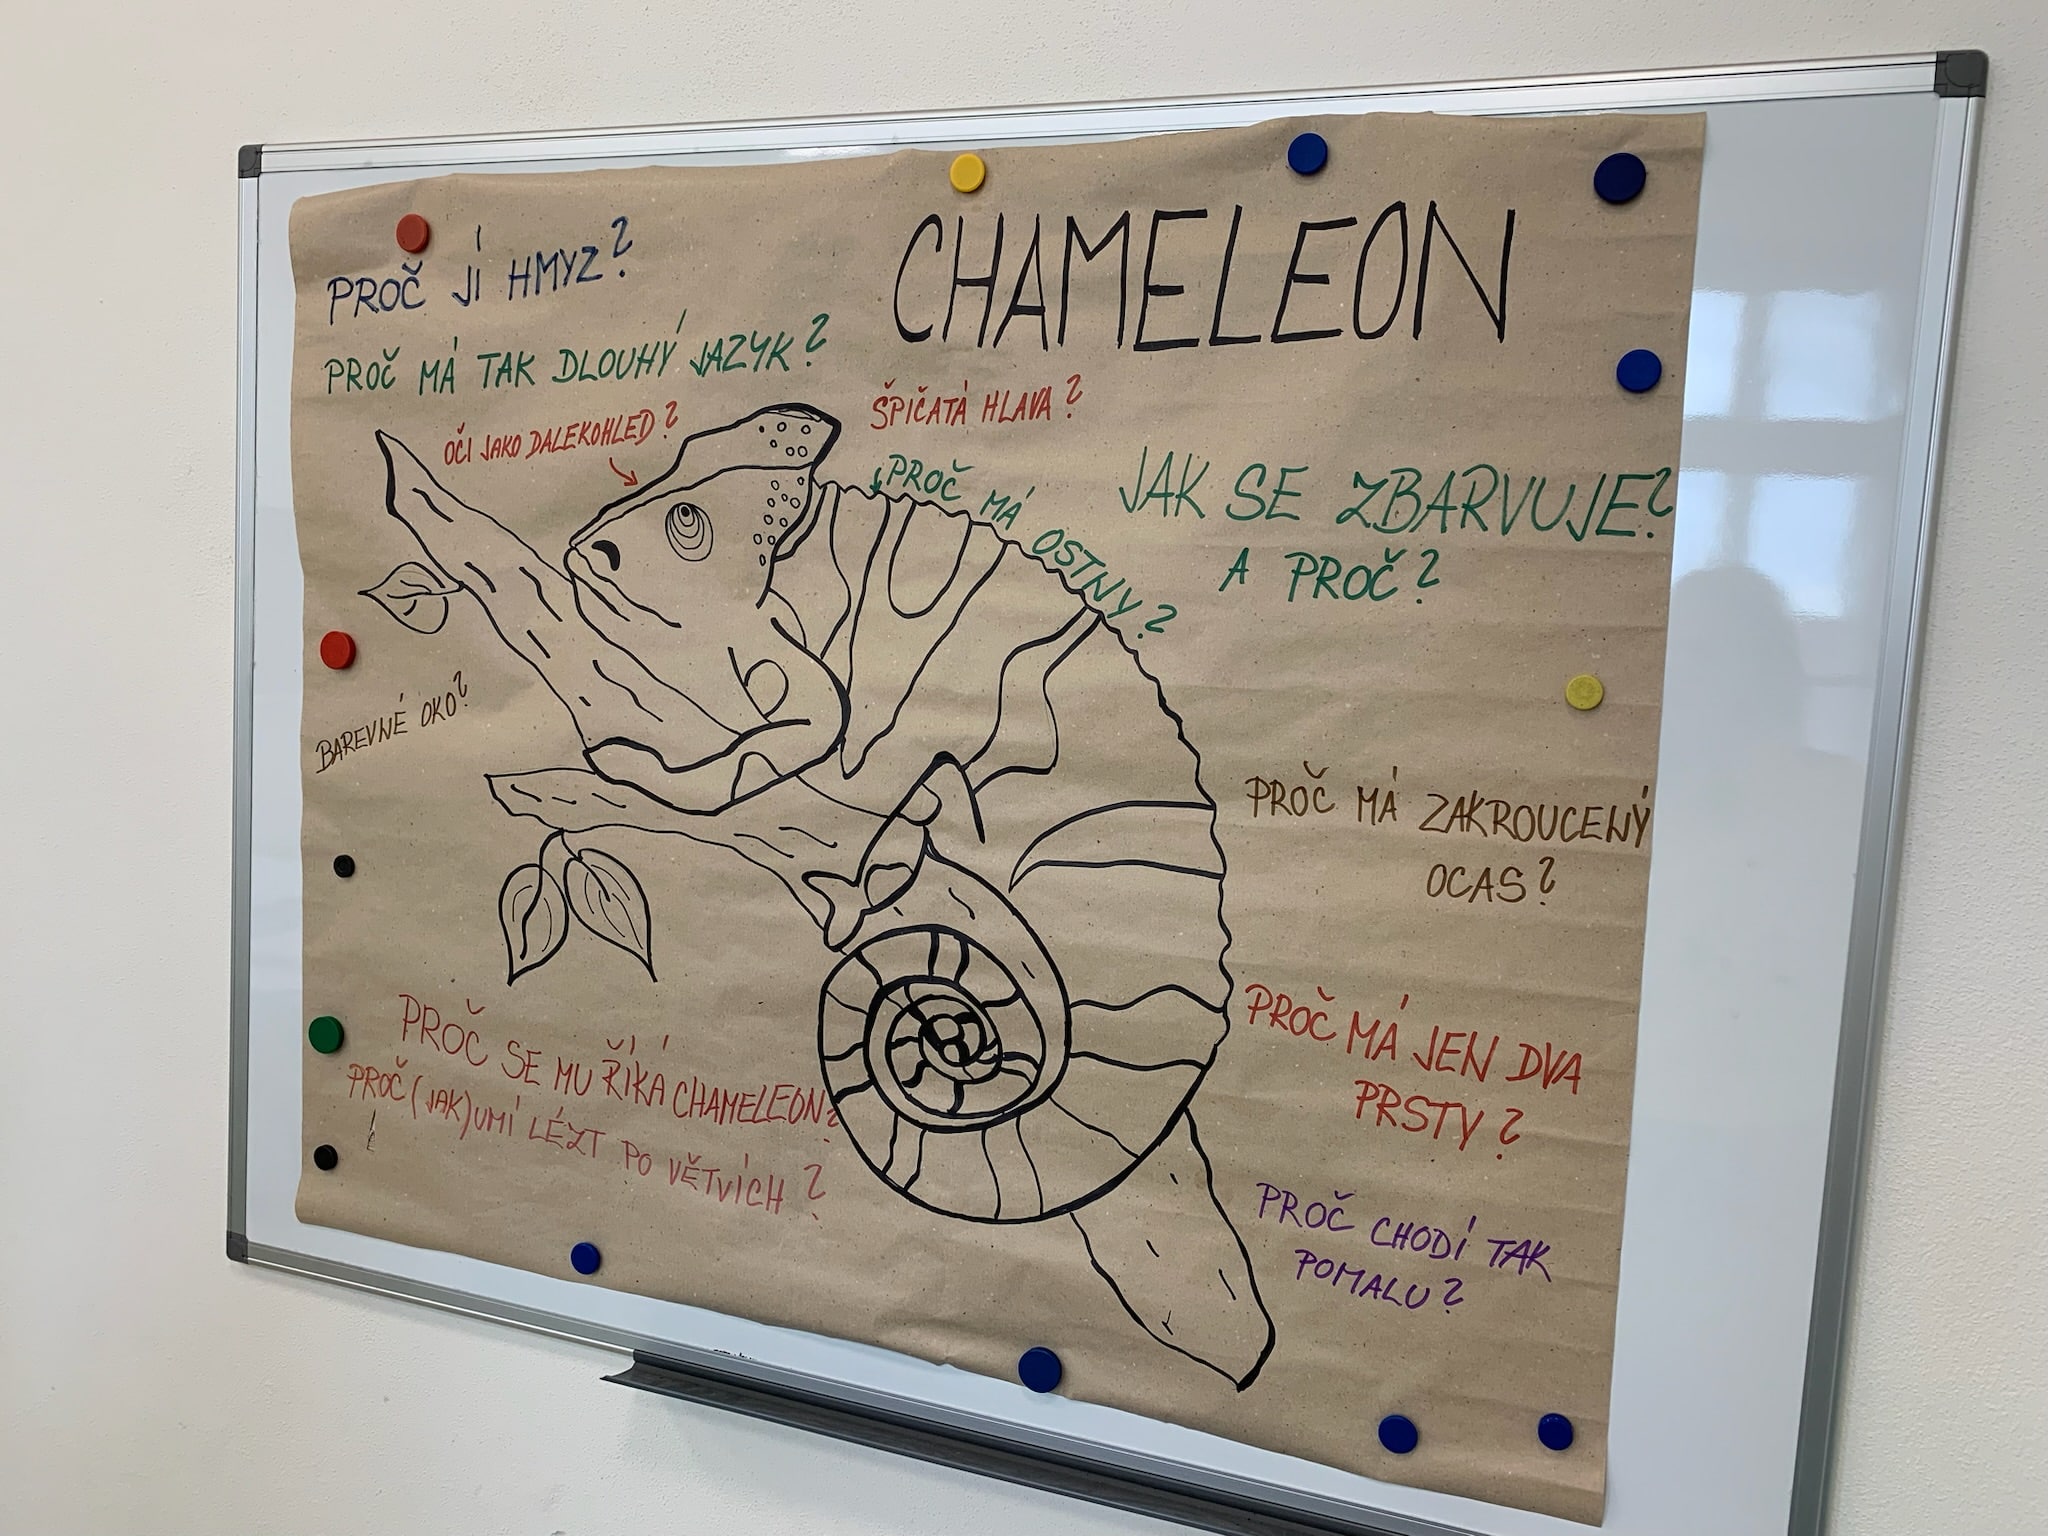 CHAMELEON
PROČ JÍ HMYZ?
PROČ MÁ TAK DLOUHÝ JAZYK?
OČI JAKO DALEKOHLED?
ŠPIČATÁ HLAVA?
PROČ MÁ OSTNY?
JAK SE ZBARVUJE?
A PROČ?
BAREVNÉ OKO?
PROČ MÁ ZAKROUCENÝ
OCAS?
PROČ MÁ JEN DVA
PRSTY?
PROČ SE MU ŘÍKÁ CHAMELEON?
PROČ (JAK) UMÍ LÉZT PO VĚTVÍCH?
PROČ CHODÍ TAK
POMALU?